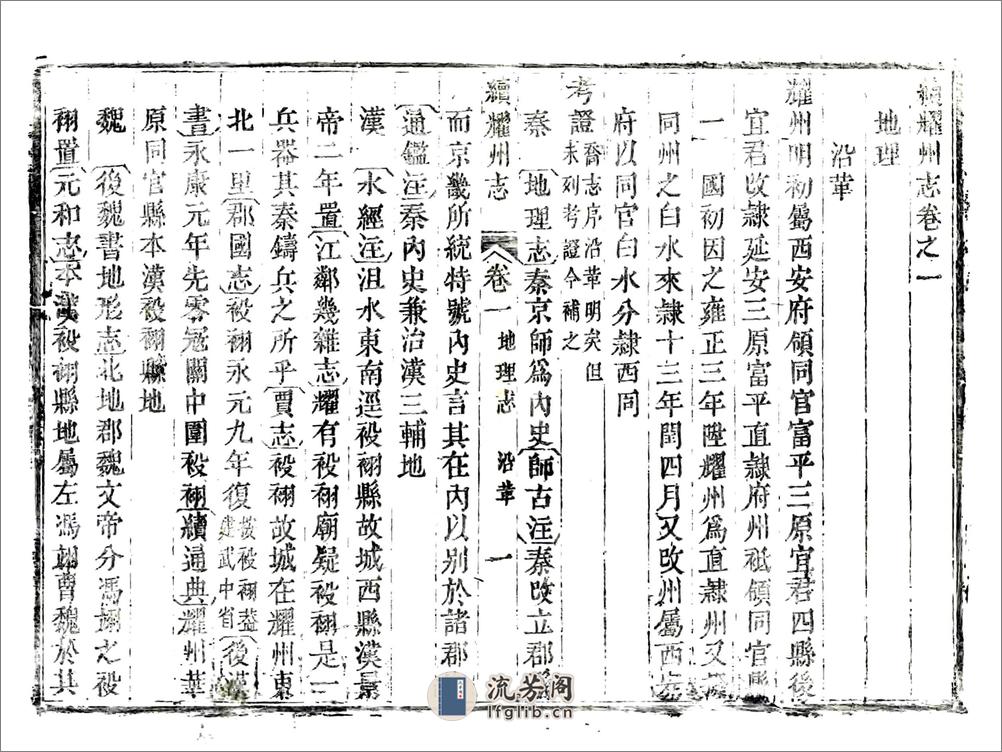 續耀州志卷之一
地理
沿革
耀州明初屬西安府領同官富平三原宜君四縣後
宜君改隸延安三原富平直隸府州祗領同官縣
一 國初因之雍正三年陞耀州為直隸州又
同州之白水來隸十三年閏四月又改州屬西安
府以同官白水分隸西同
考證喬志序沿革明矣但未列考證今補之
秦 地理志秦京師為內史師古注秦改立郡縣
續耀州志 卷一 地理志 沿革 一
而京畿所統特號內史言其在內以別於諸郡
通鑑注秦內史兼治漢三輔地
漢 水經注沮水東南逕祋祤縣故城西縣漢景
帝二年置江鄰幾雜志耀有祋祤廟疑祋祤是二
兵器其秦鑄兵之所乎賈志祋祤故城在耀州東
北一里郡國志祋祤永元九年復按祋祤蓋建武中省後漢
書永康元年先零寇關中圍祋祤續通典耀州華
原同官縣本漢祋祤縣地
魏 後魏書地形志北地郡魏文帝分馮翊之祋
祤置元和志本漢祋祤縣地屬左馮翊曹魏於其
流芳阁
lfglib.cn